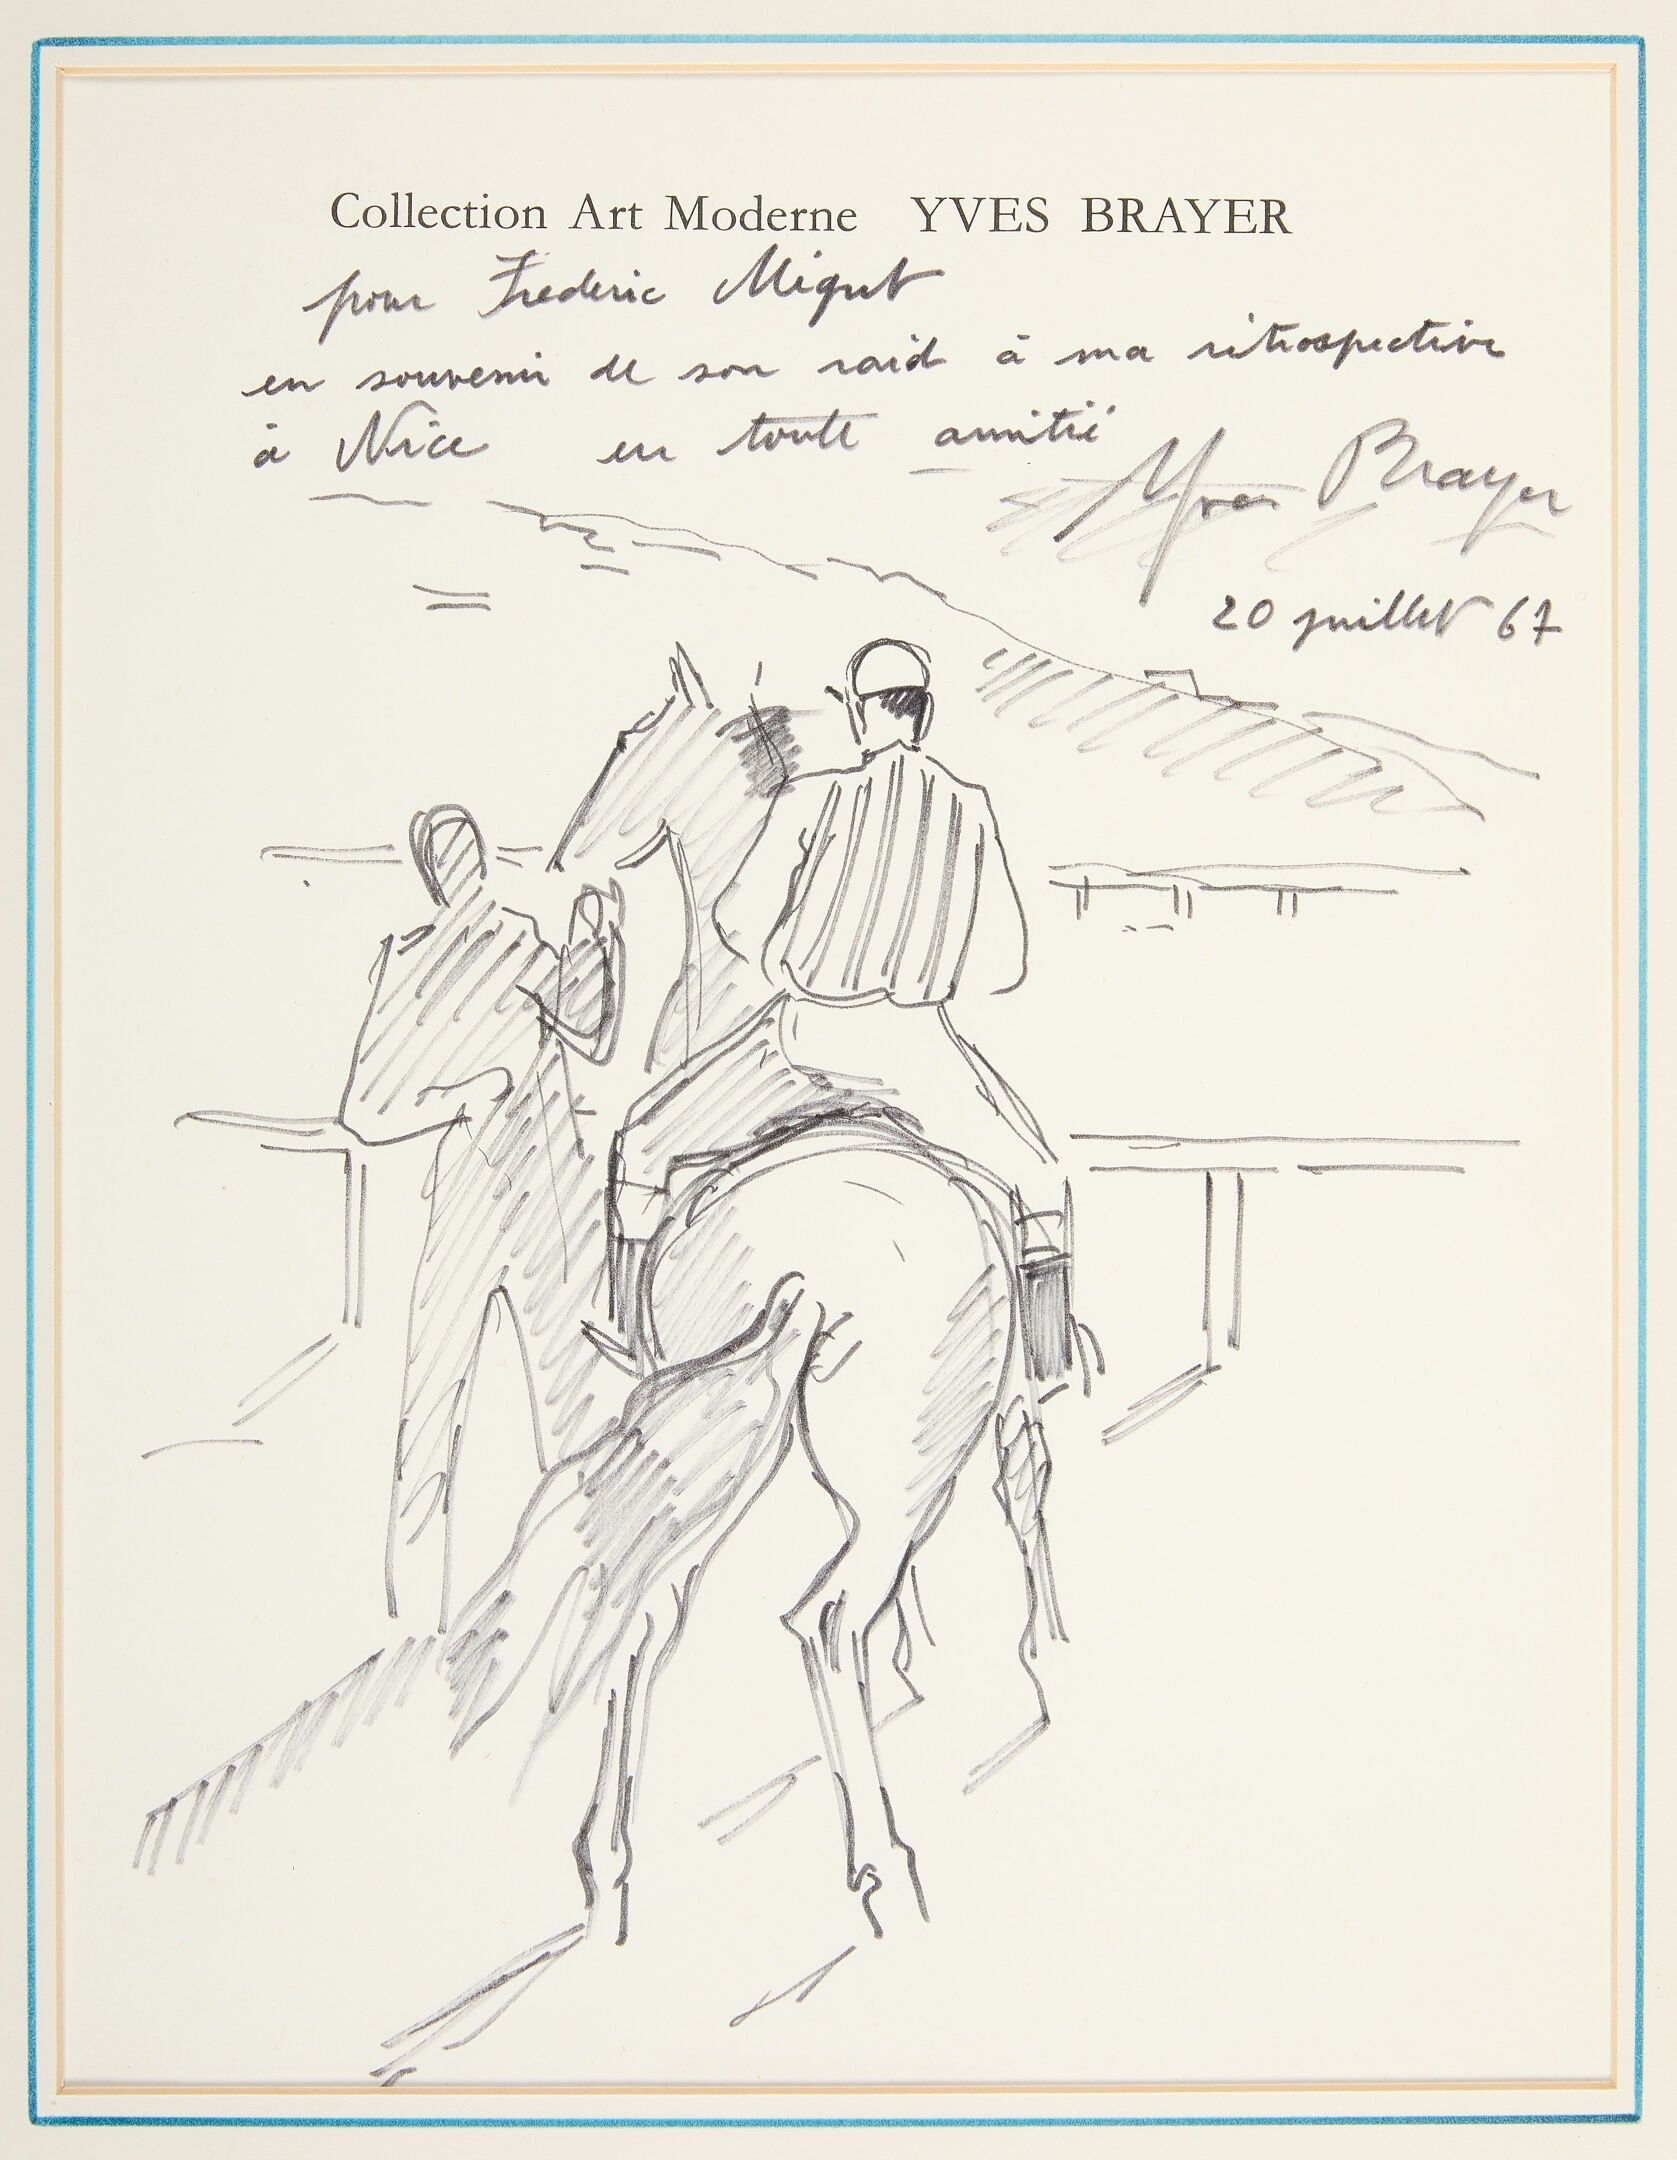 Collection Art Moderne YVES BRAYER
pour Frederic Migut
en souvenir de son raid à ma rétrospective
à Nice en toute amitié
Yves Brayer
20 juillet 67